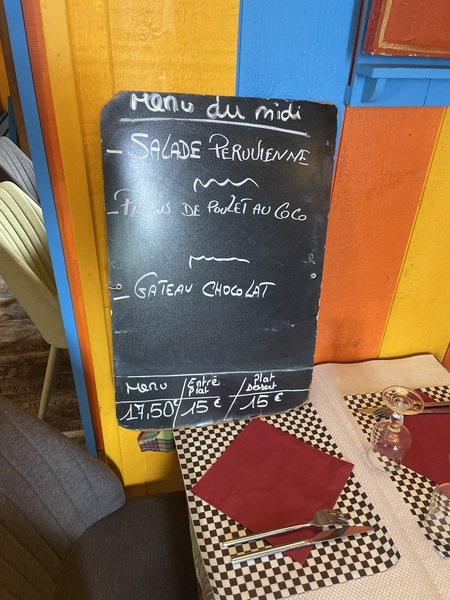 Menu du midi
- SALADE PERUVIENNE
- DE POULET AU COCO
- GATEAU CHOCOLAT
Menu Entré Plat Plat Dessert
17,50€ 15€ 15€